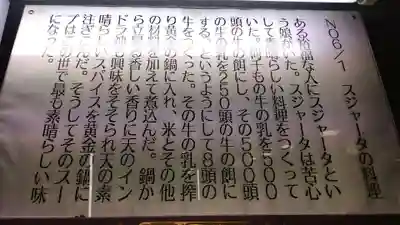 NO6/1　スジャータの料理
ある裕福な人にスジャータとい
う娘がいた。スジャータは苦心
して素晴らしい料理をつくって
いた。何千もの牛の乳を500
頭の牛の餌にし、その500頭
の牛の乳を250頭の牛の餌に
する、というようにして8頭の
牛をつくった。その牛の乳を搾
り黄金の鍋に入れ、米とその他
の材料を加えて煮込んだ。鍋か
ら立昇る香しい香りに天のイン
ドラ神も興味をそそられ天の素
晴らしいスパイスを黄金の鍋に
注ぎこんだ。そうしてそのスー
プはこの世で最も素晴らしい味
になった。